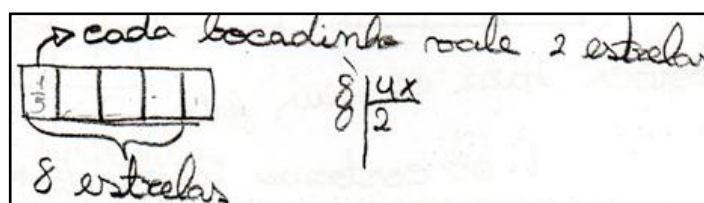 cada bocadinho vale 2 estrelas
8 | 4x
8 | 2
8 estrelas